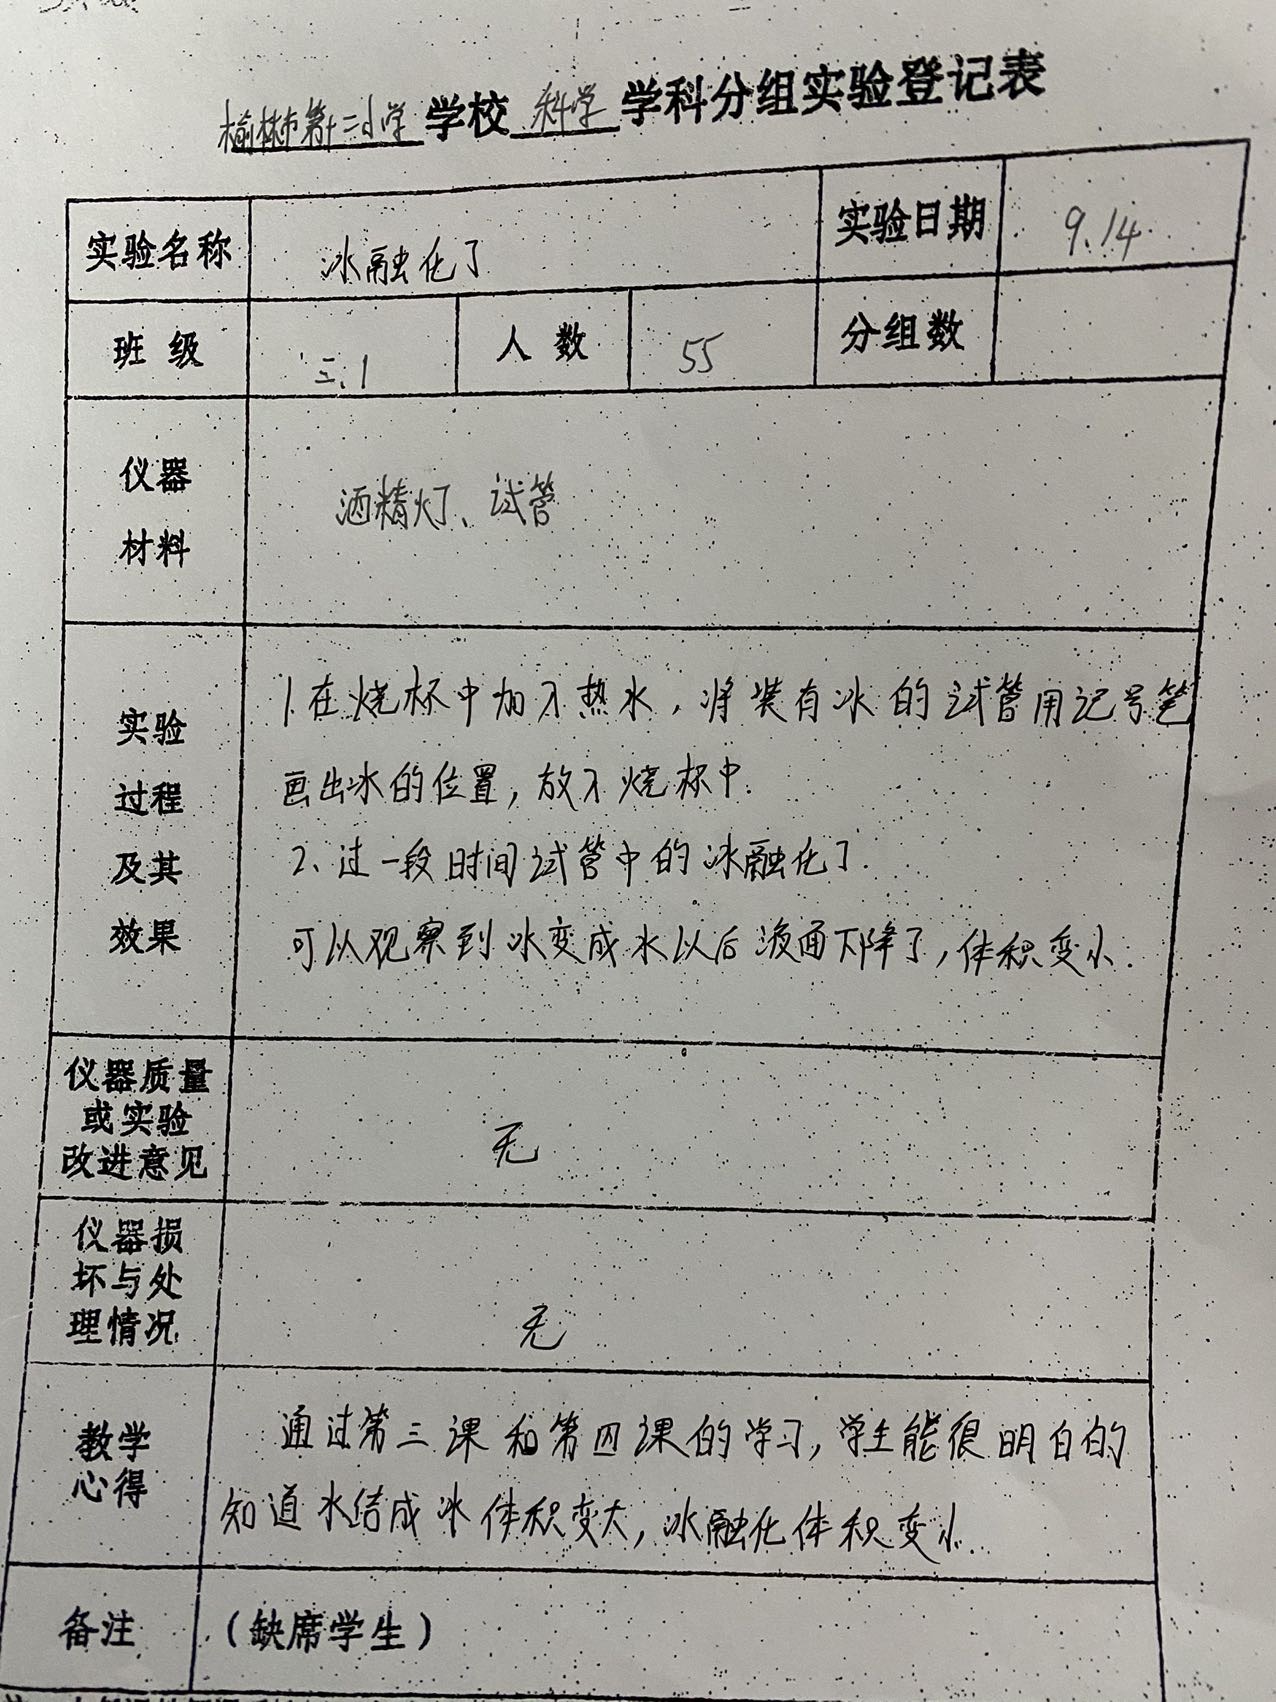 榆林市第十二小学学校科学学科分组实验登记表
实验名称 冰融化了 实验日期 9.14
班级 三.1 人数 55 分组数
仪器
材料
酒精灯、试管
实验
过程
及其
效果
1.在烧杯中加入热水,将装有冰的试管用记号笔
画出冰的位置,放入烧杯中.
2、过一段时间试管中的冰融化了.
可以观察到冰变成水以后液面下降了,体积变小.
仪器质量
或实验
改进意见
无
仪器损
坏与处
理情况
无
教学
心得
通过第三课和第四课的学习,学生能很明白的
知道水结成冰体积变大,冰融化体积变小.
备注 (缺席学生)